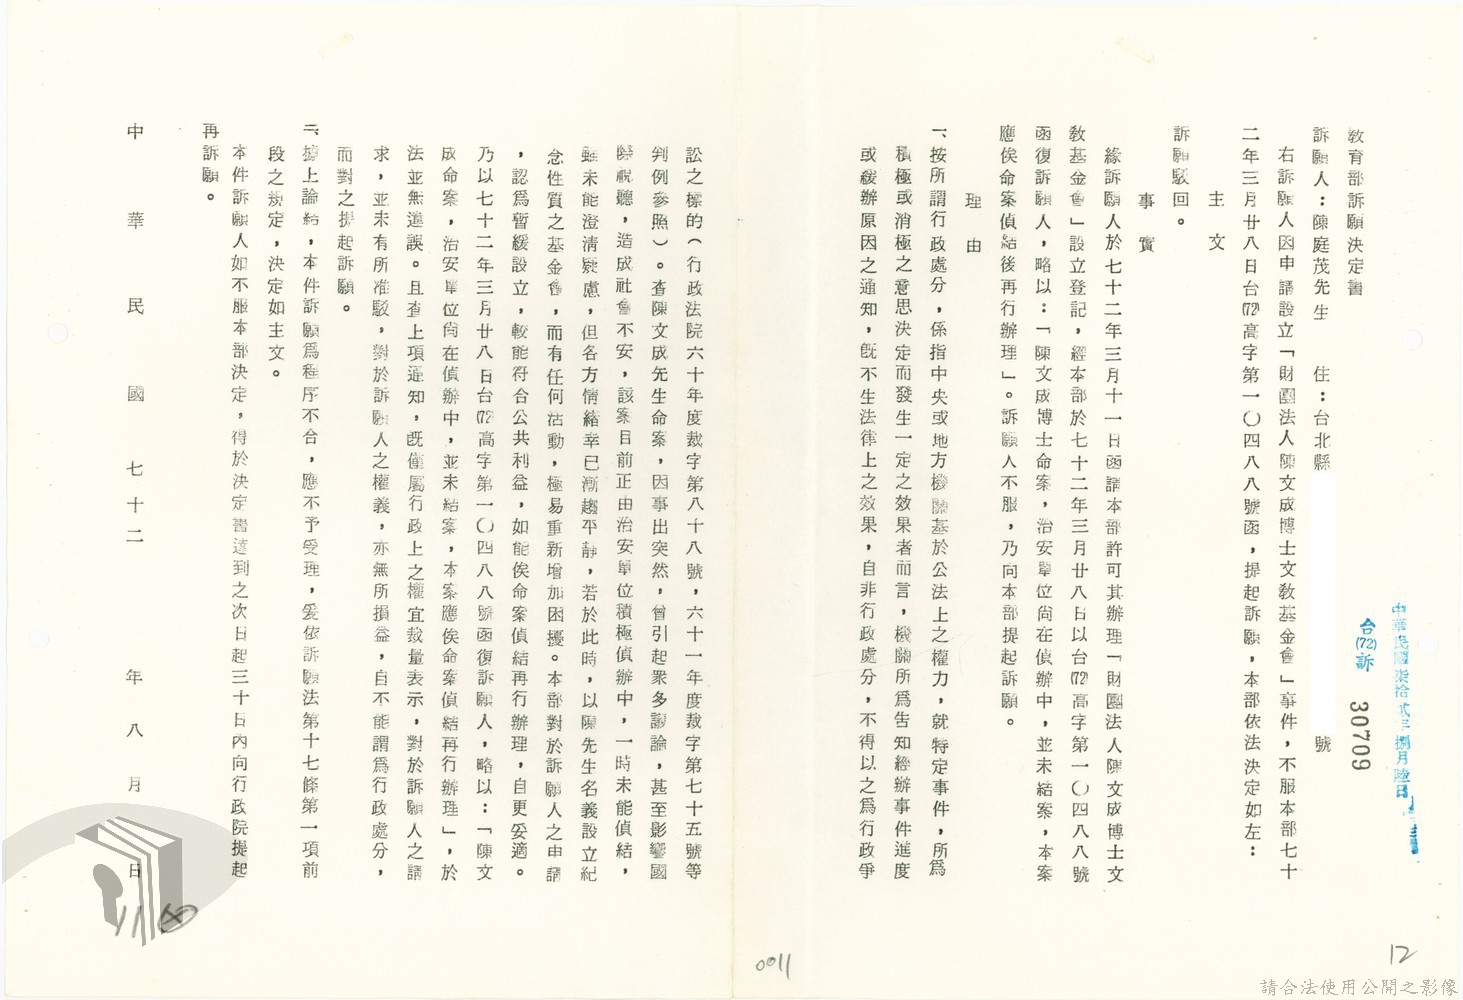 中華民國柒拾貳年捌月陸日
台(72)訴 30709
教育部訴願決定書
訴願人：陳庭茂先生　住：台北縣　號
右訴願人因申請設立「財團法人陳文成博士文教基金會」事件，不服本部七十
二年三月廿八日台(72)高字第一〇四八八號函，提起訴願，本部依法決定如左：
主文
訴願駁回。
事實
緣訴願人於七十二年三月十一日函請本部許可其辦理「財團法人陳文成博士文
教基金會」設立登記，經本部於七十二年三月廿八日以台(72)高字第一〇四八八號
函復訴願人，略以：「陳文成博士命案，治安單位尚在偵辦中，並未結案，本案
應俟命案偵結後再行辦理」。訴願人不服，乃向本部提起訴願。
理由
一、按所謂行政處分，係指中央或地方機關基於公法上之權力，就特定事件，所為
積極或消極之意思決定而發生一定之效果者而言，機關所為告知經辦事件進度
或緩辦原因之通知，既不生法律上之效果，自非行政處分，不得以之為行政爭
訟之標的（行政法院六十年度裁字第八十八號，六十一年度裁字第七十五號等
判例參照）。查陳文成先生命案，因事出突然，曾引起眾多議論，甚至影響國
際視聽，造成社會不安，該案目前正由治安單位積極偵辦中，一時未能偵結，
雖未能澄清疑慮，但各方情緒幸已漸趨平靜，若於此時，以陳先生名義設立紀
念性質之基金會，而有任何活動，極易重新增加困擾。本部對於訴願人之申請
，認為暫緩設立，較能符合公共利益，如能俟命案偵結再行辦理，自更妥適。
乃以七十二年三月廿八日台(72)高字第一〇四八八號函復訴願人，略以：「陳文
成命案，治安單位尚在偵辦中，並未結案，本案應俟命案偵結再行辦理」，於
法並無違誤。且查上項通知，既僅屬行政上之權宜裁量表示，對於訴願人之請
求，並未有所准駁，對於訴願人之權義，亦無所損益，自不能謂為行政處分，
而對之提起訴願。
二、據上論結，本件訴願為程序不合，應不予受理，爰依訴願法第十七條第一項前
段之規定，決定如主文。
本件訴願人如不服本部決定，得於決定書達到之次日起三十日內向行政院提起
再訴願。
中華民國七十二年八月日
12
0011
請合法使用公開之影像